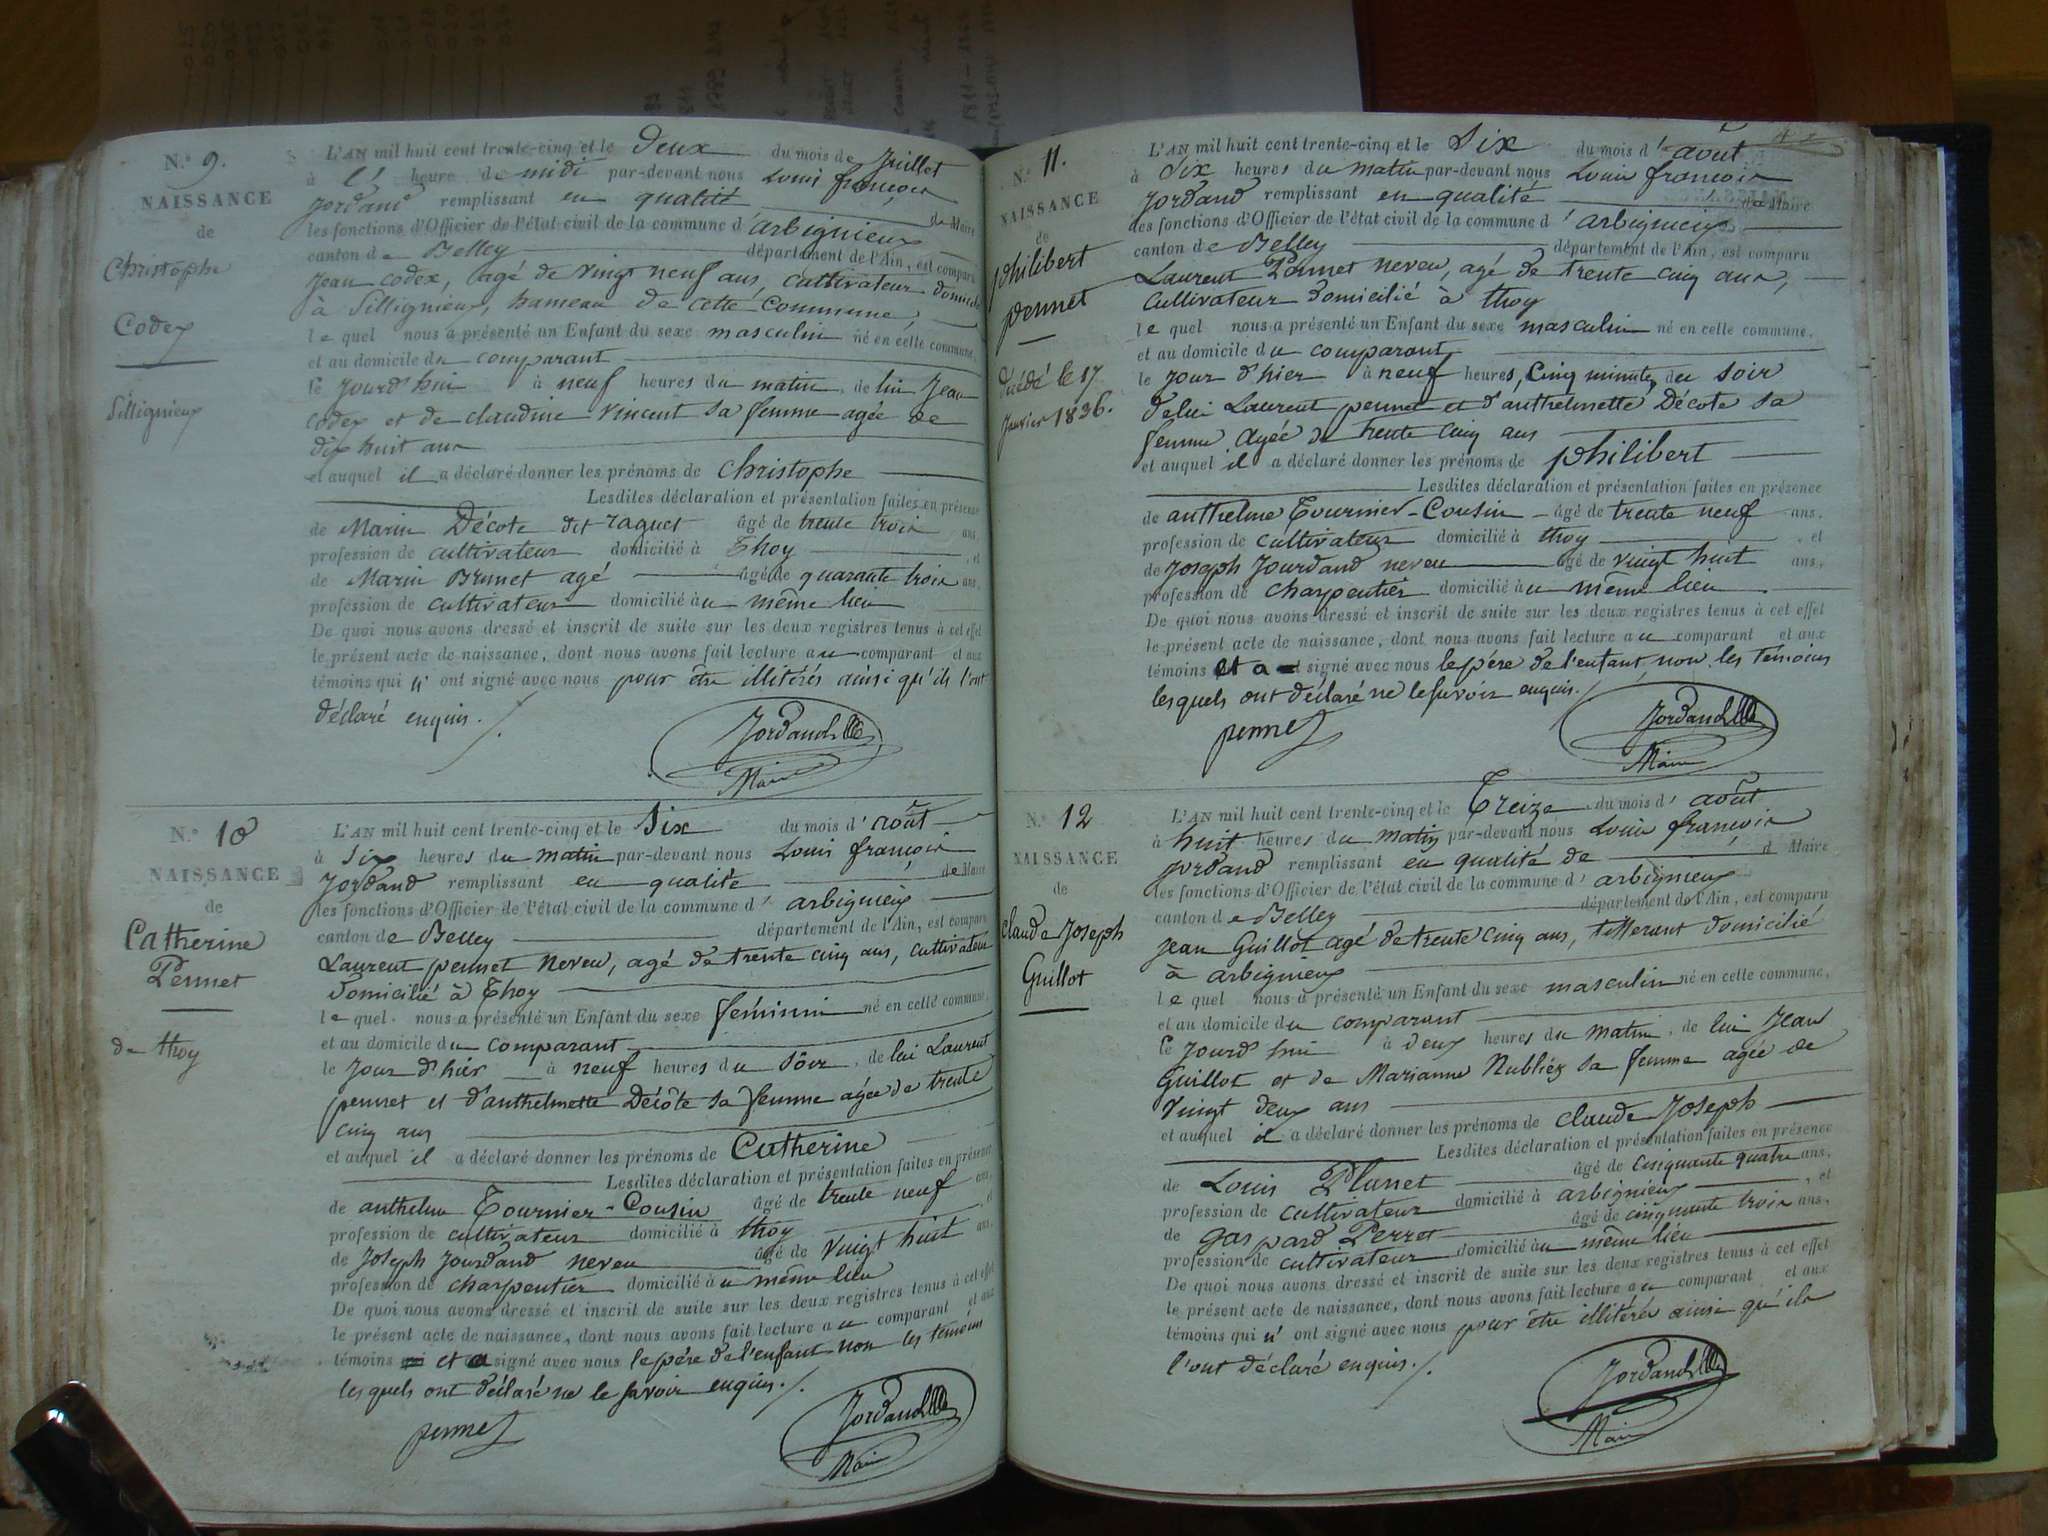 N.° 9.
NAISSANCE
de
Christophe
Codex
Sillignieux
L'AN mil huit cent trente-cinq et le deux du mois de Juillet
à l' heure de midi par-devant nous Louis françois
Jordand remplissant en qualité de Maire
les fonctions d'Officier de l'état civil de la commune d'arbignieux
canton de Belley département de l'Ain, est comparu
Jean Codex, agé de vingt neuf ans, cultivateur domicilié
à Sillignieux, hameau de cette commune,
le quel nous a présenté un Enfant du sexe masculin né en cette commune,
et au domicile du comparant
le Jourd'hui à neuf heures du matin, de lui Jean
Codex et de claudine vincent sa femme agée de
dix huit ans
et auquel il a déclaré donner les prénoms de Christophe
Lesdites déclaration et présentation faites en présence
de Marin Décote dit raquet âgé de trente trois ans,
profession de cultivateur domicilié à Thoy , et
de Marin Brunet agé âgé de quarante trois ans,
profession de cultivateur domicilié au même lieu
De quoi nous avons dressé et inscrit de suite sur les deux registres tenus à cet effet
le présent acte de naissance, dont nous avons fait lecture au comparant et aux
témoins qui n' ont signé avec nous pour être illitérés ainsi qu'ils l'ont
déclaré enquis./.
Jordand
Maire
N.° 10
NAISSANCE
de
Catherine
Pennet
de thoy
L'AN mil huit cent trente-cinq et le Six du mois d' août
à Six heures du matin par-devant nous Louis françois
Jordand remplissant en qualité de Maire
les fonctions d'Officier de l'état civil de la commune d' arbignieux
canton de Belley département de l'Ain, est comparu
Laurent pennet neveu, agé de trente cinq ans, cultivateur
domicilié à Thoy
le quel nous a présenté un Enfant du sexe féminin né en cette commune,
et au domicile du comparant
le Jour d'hier à neuf heures du soir, de lui Laurent
pennet et d'anthelmette Décôte sa femme agée de trente
cinq ans
et auquel il a déclaré donner les prénoms de Catherine
Lesdites déclaration et présentation faites en présence
de anthelme Tournier-Cousin âgé de trente neuf ans,
profession de cultivateur domicilié à thoy , et
de Joseph Jourdand neveu âgé de vingt huit ans,
profession de charpentier domicilié au même lieu
De quoi nous avons dressé et inscrit de suite sur les deux registres tenus à cet effet
le présent acte de naissance, dont nous avons fait lecture au comparant et aux
témoins et a signé avec nous le père de l'enfant non les témoins
lesquels ont déclaré ne le savoir enquis./.
pennet
Jordand
Maire
N.° 11.
NAISSANCE
de
philibert
pennet
Décédé le 17
Janvier 1836.
L'AN mil huit cent trente-cinq et le Six du mois d' août
à Six heures du matin par-devant nous Louis françois
Jordand remplissant en qualité de Maire
les fonctions d'Officier de l'état civil de la commune d' arbignieux
canton de Belley département de l'Ain, est comparu
Laurent Pennet neveu, agé de trente cinq ans,
cultivateur domicilié à thoy
le quel nous a présenté un Enfant du sexe masculin né en cette commune,
et au domicile du comparant
le Jour d'hier à neuf heures, cinq minutes du soir
de lui Laurent pennet et d'anthelmette Décote sa
femme agée de trente cinq ans
et auquel il a déclaré donner les prénoms de philibert
Lesdites déclaration et présentation faites en présence
de anthelme Tournier-Cousin âgé de trente neuf ans,
profession de cultivateur domicilié à thoy , et
de Joseph Jourdand neveu âgé de vingt huit ans,
profession de charpentier domicilié au même lieu.
De quoi nous avons dressé et inscrit de suite sur les deux registres tenus à cet effet
le présent acte de naissance, dont nous avons fait lecture au comparant et aux
témoins et a signé avec nous le père de l'enfant, non les témoins
lesquels ont déclaré ne le savoir enquis./.
pennet
Jordand
Maire
N.° 12
NAISSANCE
de
claude Joseph
Guillot
L'AN mil huit cent trente-cinq et le Treize du mois d' août
à huit heures du matin par-devant nous Louis françois
Jordand remplissant en qualité de d Maire
les fonctions d'Officier de l'état civil de la commune d' arbignieux
canton de Belley département de l'Ain, est comparu
Jean Guillot agé de trente cinq ans, tisserant domicilié
à arbignieux
le quel nous a présenté un Enfant du sexe masculin né en cette commune,
et au domicile du comparant
le Jourd'hui à deux heures du matin, de lui Jean
Guillot et de Marianne Rubliéz sa femme agée de
vingt deux ans
et auquel il a déclaré donner les prénoms de claude Joseph
Lesdites déclaration et présentation faites en présence
de Louis Plunet âgé de cinquante quatre ans,
profession de cultivateur domicilié à arbignieux , et
de Gaspard Perret âgé de cinquante trois ans,
profession de cultivateur domicilié au même lieu
De quoi nous avons dressé et inscrit de suite sur les deux registres tenus à cet effet
le présent acte de naissance, dont nous avons fait lecture au comparant et aux
témoins qui n' ont signé avec nous pour être illitérés ainsi qu'ils
l'ont déclaré enquis./.
Jordand
Maire